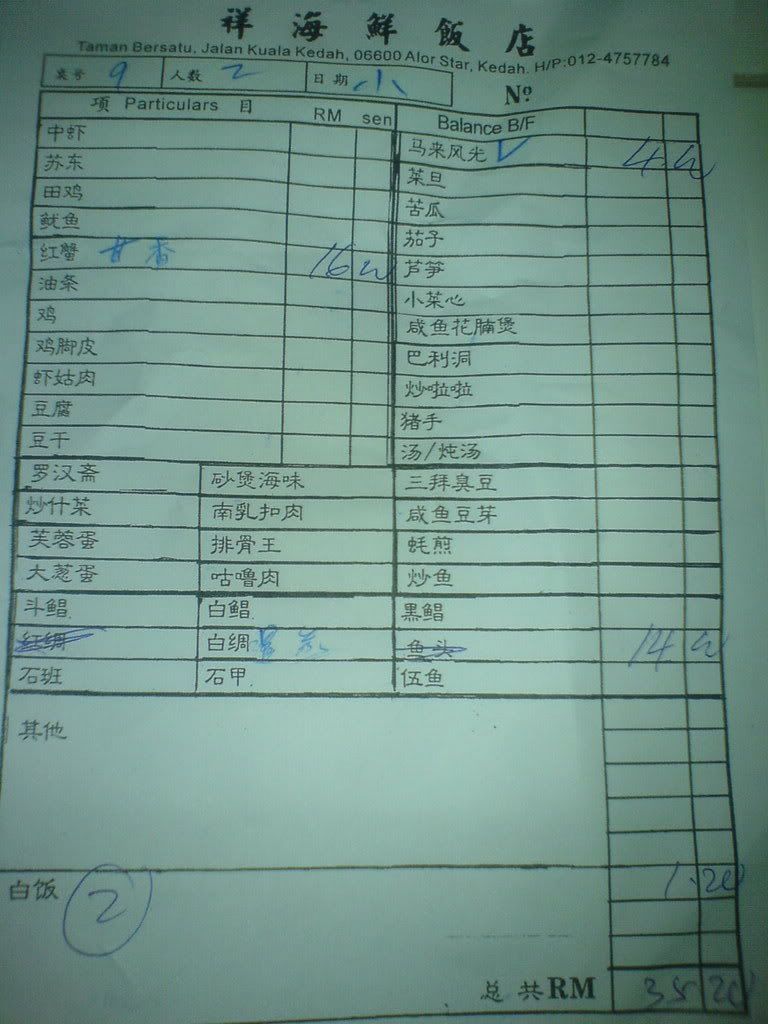 祥海鮮飯店
Taman Bersatu, Jalan Kuala Kedah, 06600 Alor Star, Kedah. H/P:012-4757784
桌号 9 人数 2 日期 小
Nº
項 Particulars 目 RM sen Balance B/F
中虾 马来风光 ✓ 4
苏东 菜旦
田鸡 苦瓜
鱿鱼 茄子
红蟹 甘香 16 芦笋
油条 小菜心
鸡 咸鱼花腩煲
鸡脚皮 巴利洞
虾姑肉 炒啦啦
豆腐 猪手
豆干 汤/炖汤
罗汉斋 砂煲海味 三拜臭豆
炒什菜 南乳扣肉 咸鱼豆芽
芙蓉蛋 排骨王 蚝煎
大葱蛋 咕噜肉 炒鱼
斗鲳 白鲳 黑鲳
红绸 白绸 鱼头 14
石班 石甲 伍鱼
其他
1.20
白饭 2
总共RM 35 20